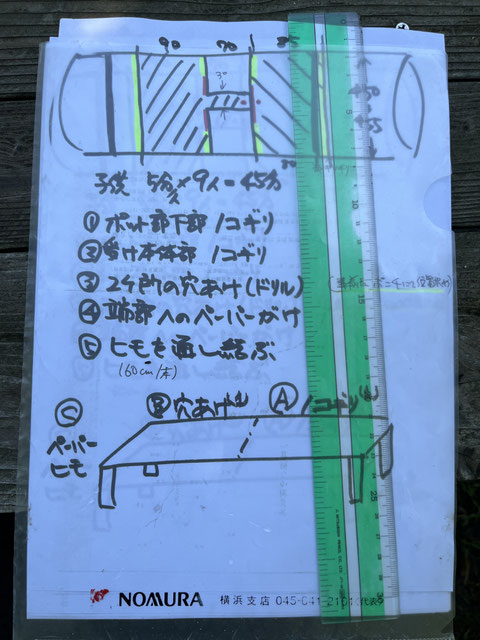 90 70
3°
子供 5分/人×9人=45分
① ポット部下部 ノコギリ
② 受け本体部 ノコギリ
③ 2ケ所の穴あけ(ドリル)
④ 端部へのペーパーがけ
⑤ ヒモを通し結ぶ
(60cm/本)
Ⓑ 穴あけ Ⓐ ノコギリ
Ⓒ ペーパー
ヒモ
NOMURA 横浜支店 045-641-2101(代表)